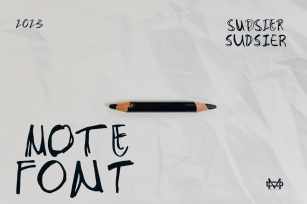 2023
SUDSIER
SUDSIER
NOTE
FONT